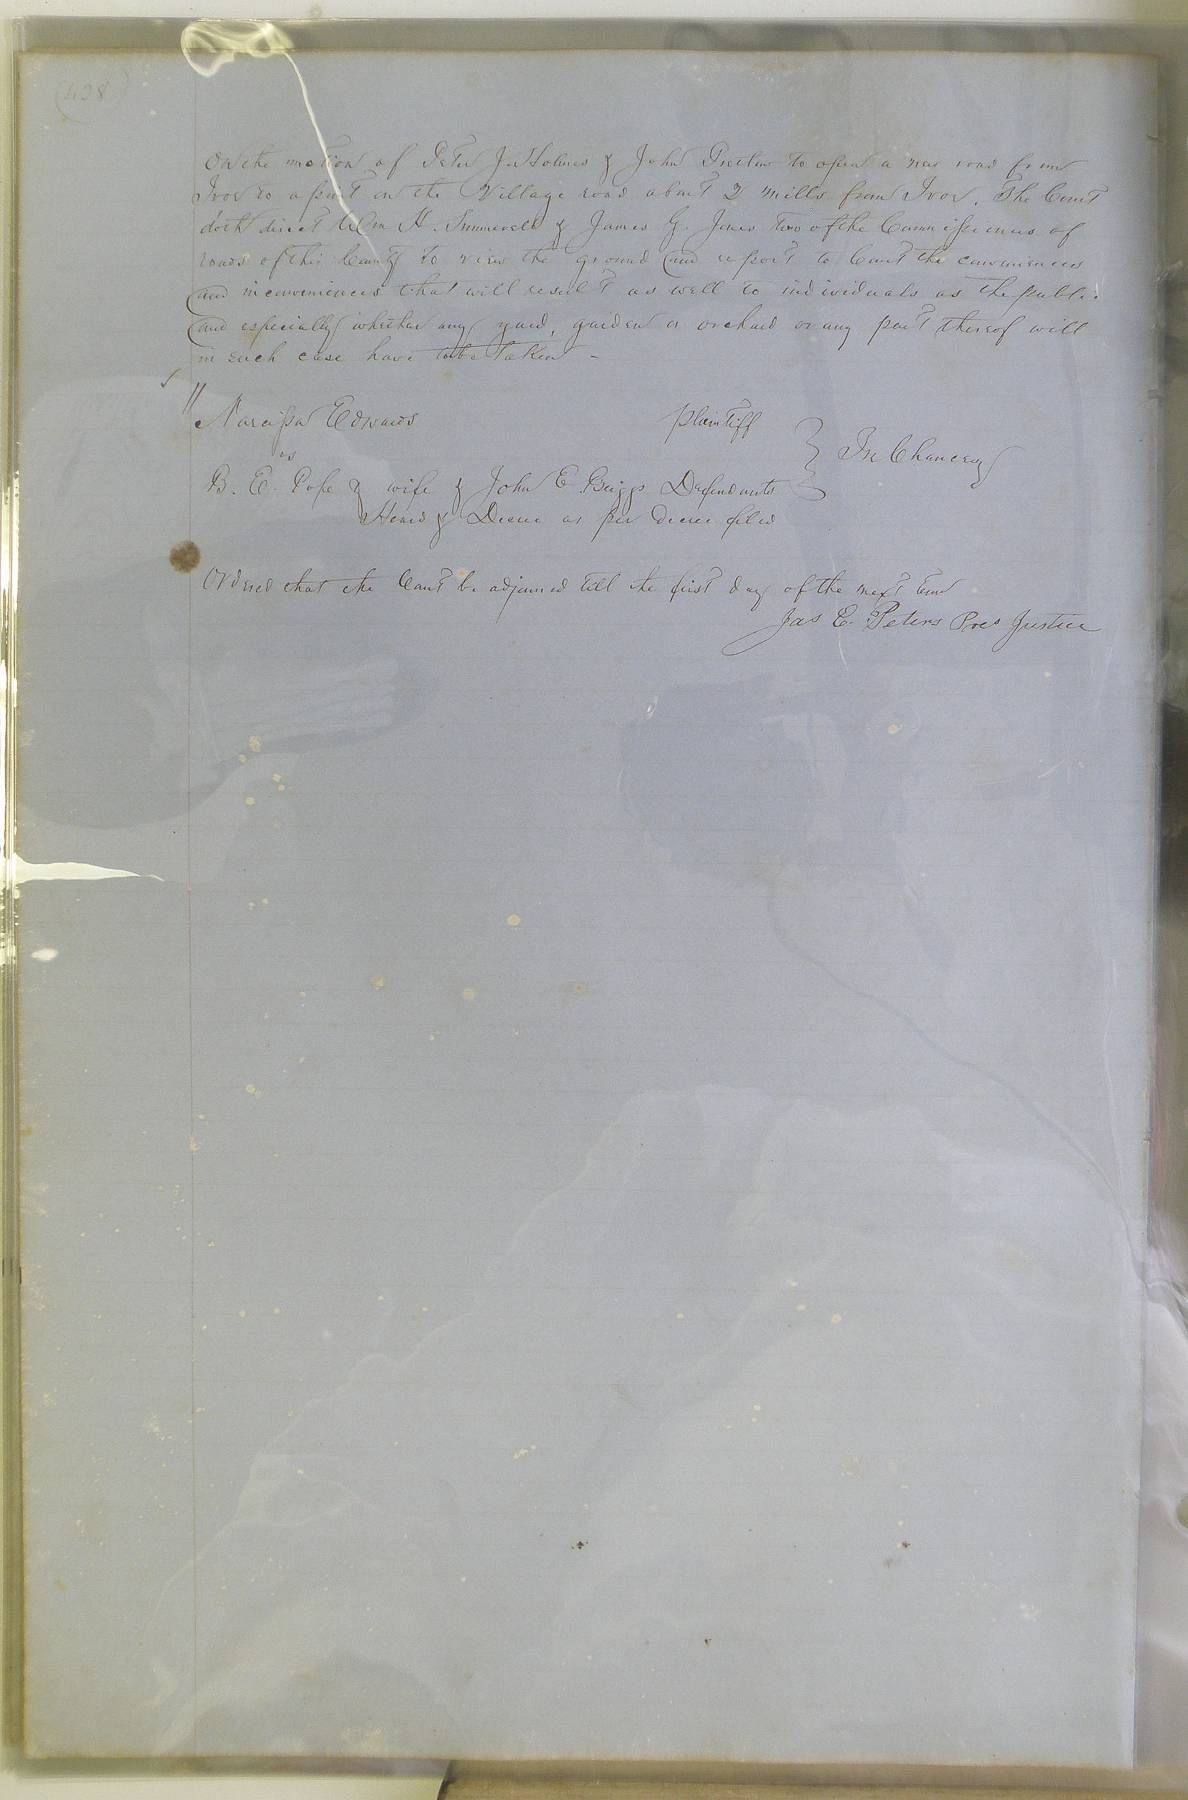 (438)
On the motion of Peter J. Holmes & John Pretlow to open a new road from
Ivor to a point on the Village road about 2 mills from Ivor, The Court
doth direct Wm H. Summerell & James G. Jones two of the Commissioners of
roads of this County to view the ground and report to Court the conveniences
and inconveniences that will result as well to individuals as the public
and especially whether any yard, garden or orchard or any part thereof will
in such case have to be taken -
Narcissa Edwards plaintiff
vs } In Chancery
B. E. Pope & wife & John E Briggs Defendants
Heard & Decree as per decree filed
Ordered that the Court be adjourned till the first day of the next Term
Jas E. Peters Pres Justice